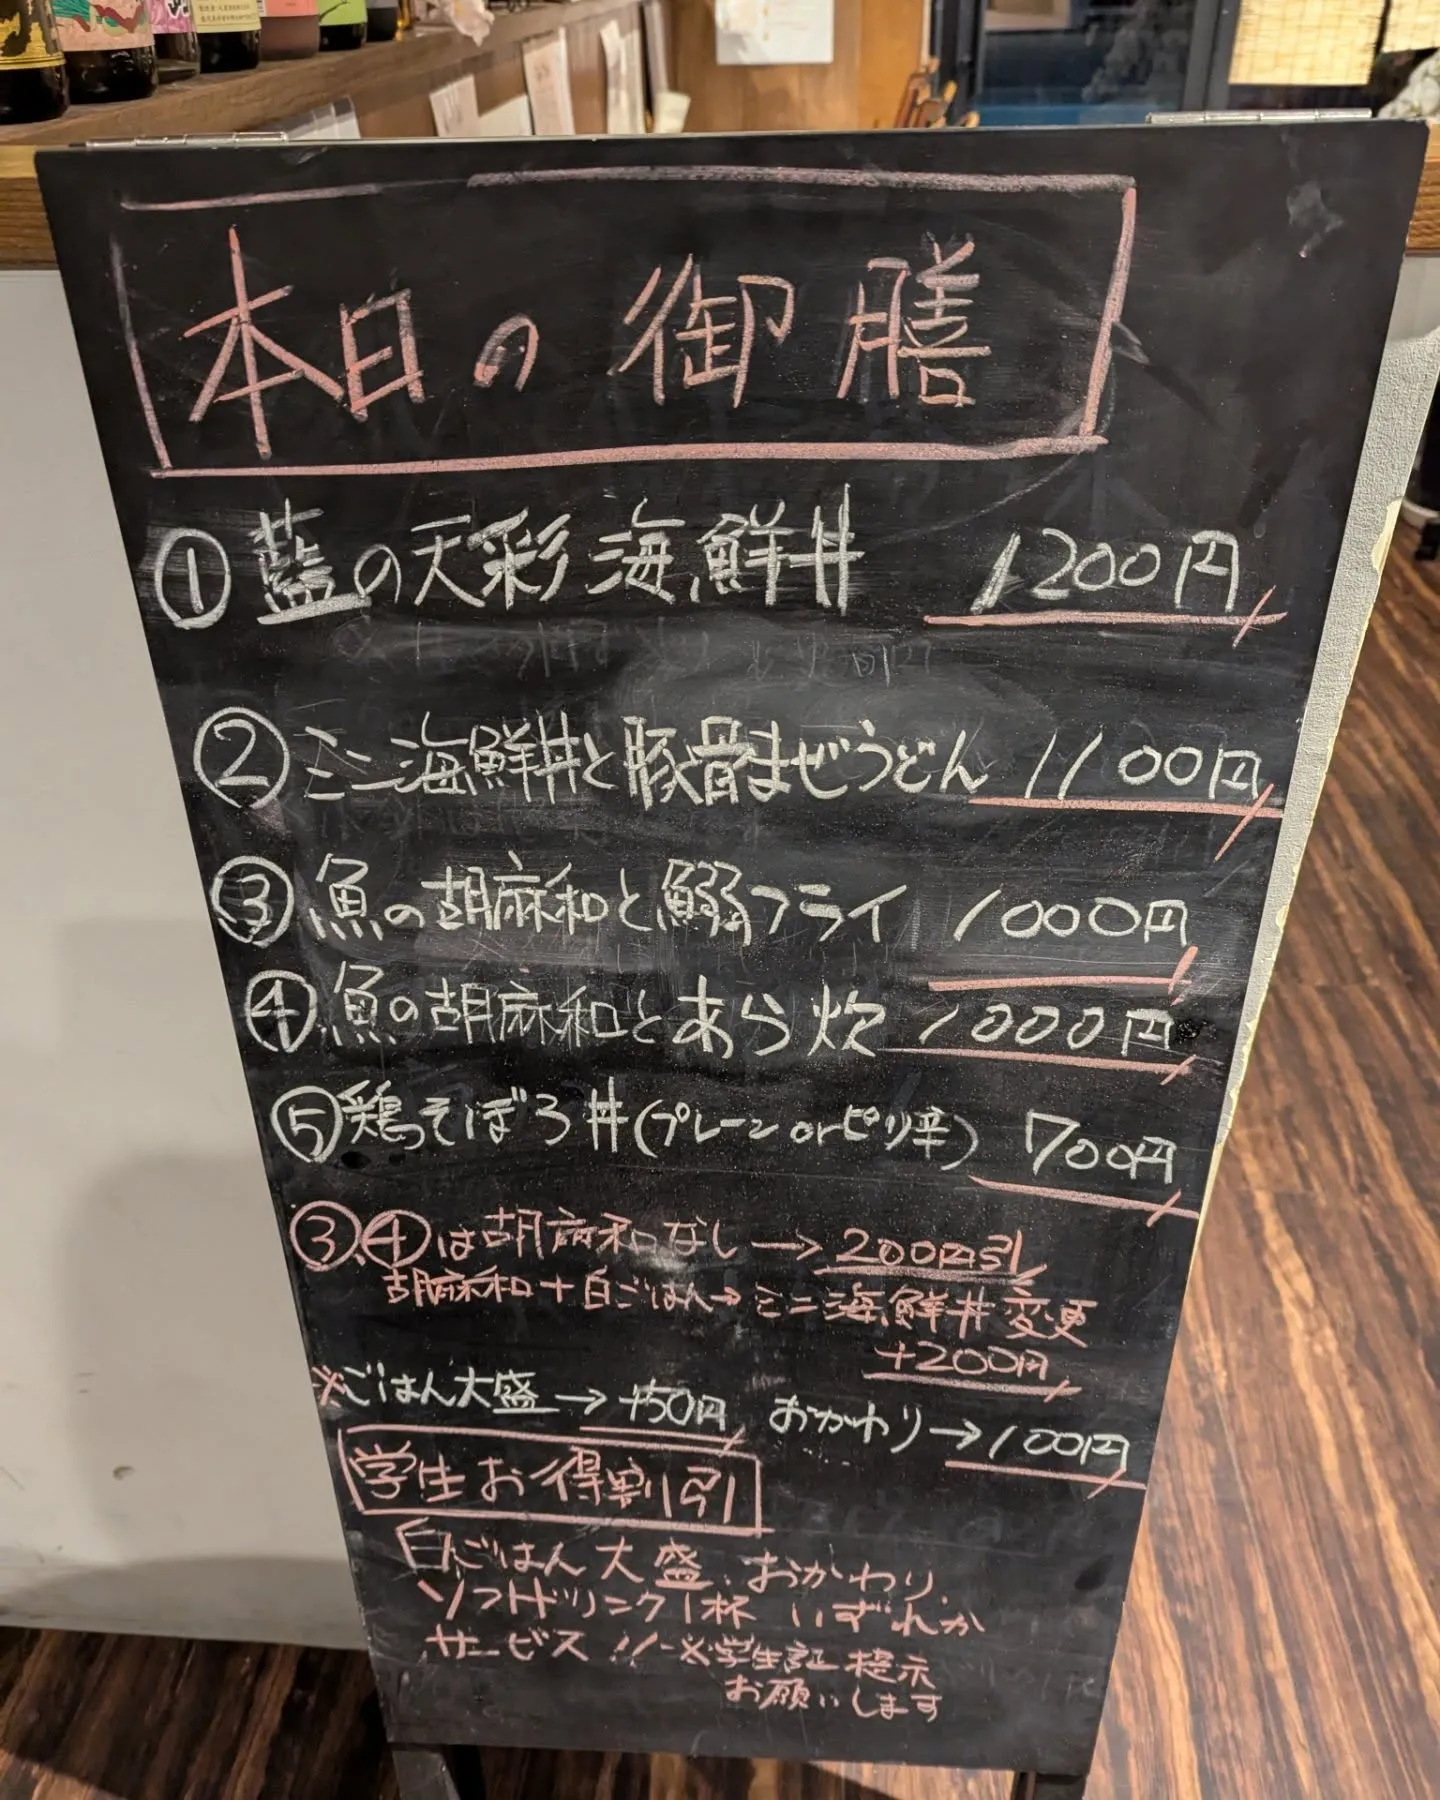 本日の御膳
① 藍の天彩海鮮丼 1200円
② ミニ海鮮丼と豚骨まぜうどん 1100円
③ 魚の胡麻和と鰯フライ 1000円
④ 魚の胡麻和とあら炊 1000円
⑤ 鶏そぼろ丼(プレーンorピリ辛) 700円
③④は胡麻和なし→200円引
胡麻和+白ごはん→ミニ海鮮丼変更
+200円
※ごはん大盛→+50円 おかわり→100円
学生お得割引
白ごはん大盛、おかわり、
ソフトドリンク1杯 いずれか
サービス!! ※学生証提示
お願いします